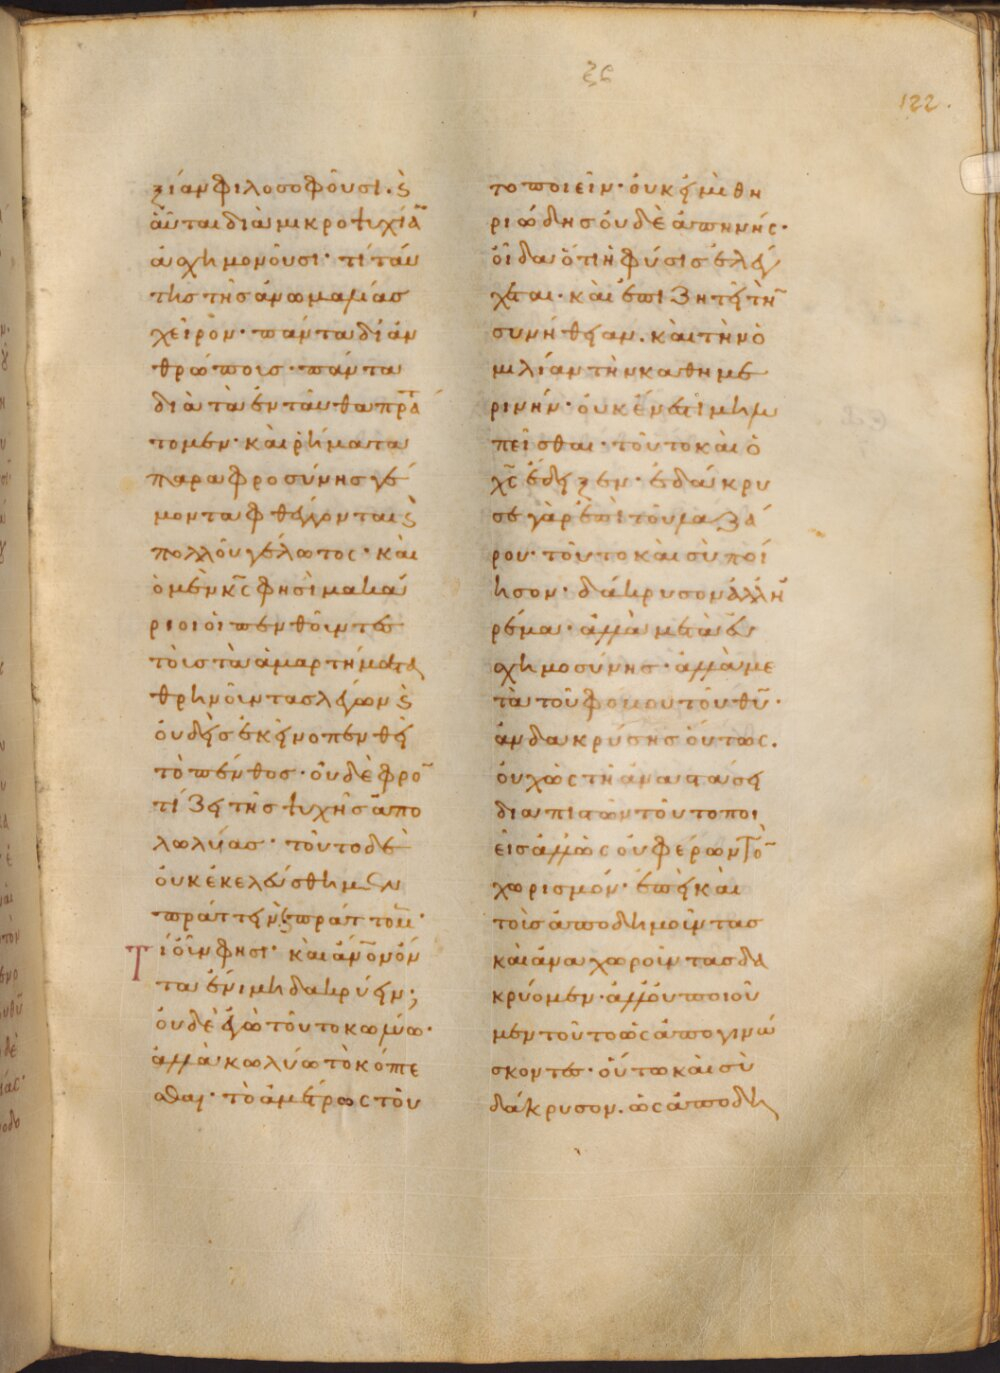 ξϛ
122.
ξίαν φιλοσοφοῦσι. ϗ
αὗται διὰ μικροψυχίᾱ
ἀσχημονοῦσι· τί ταύ
της τῆς ἀνωμαλίας
χεῖρον· πάντα δι' ἀν
θρώποις· πάντα
διὰ τὰ ἐνταῦθα πρατ
τομεν· καὶ ῥήματα
παραφροσύνης γέ
μοντα φθέγγονται ϗ
πολλοῦ γέλωτος· καὶ
ὁ μὲν κς φησὶ μακά
ριοι οἱ πενθοῦντες
τοὺς τὰ ἁμαρτήματα
θρηνοῦντας λέγων ϗ
οὐδεὶς ἐκεῖνο πενθεῖ
τὸ πένθος· οὐδὲ φρο
τίζει τῆς ψυχῆς ἀπο
λωλυίας· τοῦτο δὲ
οὐκ ἐκελεύσθημεν
πράττειν ϗ πράττομ
Τί οὖν φησι· καὶ ἀνον ὄν
τα ἔνι μὴ δακρύειν;
οὐδὲ ἐγὼ τοῦτο κωλύω·
ἀλλὰ κωλύω τὸ κόπτε
σθαι· τὸ ἀμέτρως τοῦ
το ποιεῖν· οὐκ εἰμὶ θη
ριώδης οὐδὲ ἀπηνής·
οἶδα ὅτι ἡ φύσις ἐλέγ
χεται· καὶ ἐπιζητεῖ τὴ
συνήθειαν. καὶ τὴν ὁ
μιλίαν τὴν καθημε
ρινήν· οὐκ ἔνεστι μὴ λυ
πεῖσθαι· τοῦτο καὶ ὁ
χς ἔδειξεν· ἐδάκρυ
σε γὰρ ἐπὶ τοῦ λαζά
ρου· τοῦτο καὶ σὺ ποί
ησον· δάκρυσον ἀλλ' ἠ
ρέμα· ἀλλὰ μετὰ εὐ
σχημοσύνης· ἀλλὰ με
τὰ τοῦ φόβου τοῦ θυ·
ἂν δακρύσῃς οὕτως.
οὐχ ὡς τῇ ἀναστάσει
διαπιστῶν τοῦτο ποι
εῖς ἀλλ' ὡς οὐ φέρων τὸ
χωρισμόν· ἐπεὶ καὶ
τοὺς ἀποδημοῦντας
καὶ ἀναχωροῦντας δα
κρύομεν· ἀλλ' οὐ ποιοῦ
μεν τοῦτο ὡς ἀπογινώ
σκοντες· οὕτω καὶ σὺ
δάκρυσον. ὡς ἀποδη